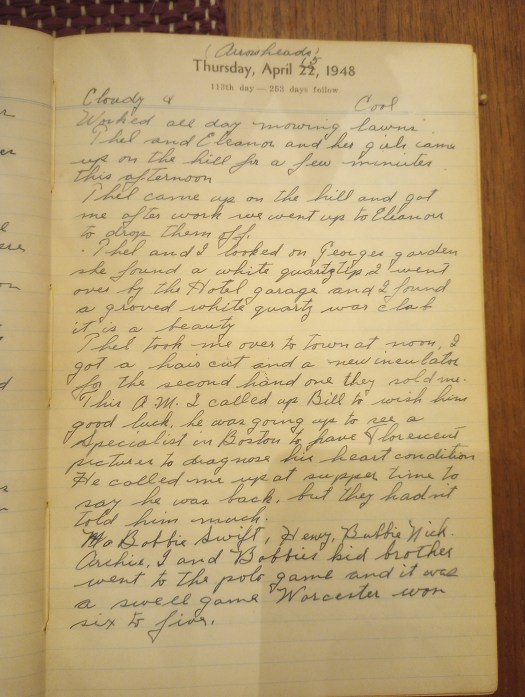 (Arrowheads)
15
Thursday, April 22, 1948
113th day — 253 days follow
Cloudy & Cool
Worked all day mowing lawns.
Thel and Eleanor and her girls came
up on the hill for a few minutes
this afternoon
Thel came up on the hill and got
me after work we went up to Eleanors
to drop them off.
Thel and I looked on Georges garden
she found a white quartz tip I went
over by the Hotel garage and I found
a groved white quartz war club
it is a beauty
Thel took me over to town at noon, I
got a hair cut and a new inculator
for the second hand one they sold me.
This A.M. I called up Bill to wish him
good luck, he was going up to see a
Specialist in Boston to have Florescent
pictures to diagnose his heart condition
He called me up at supper time to
say he was back, but they hadn't
told him much.
Ma Bobbie Swift, Henry, Bubbie Nick.
Archie, I and Bobbies kid brother
went to the polo game and it was
a swell game Worcester won
six to five.